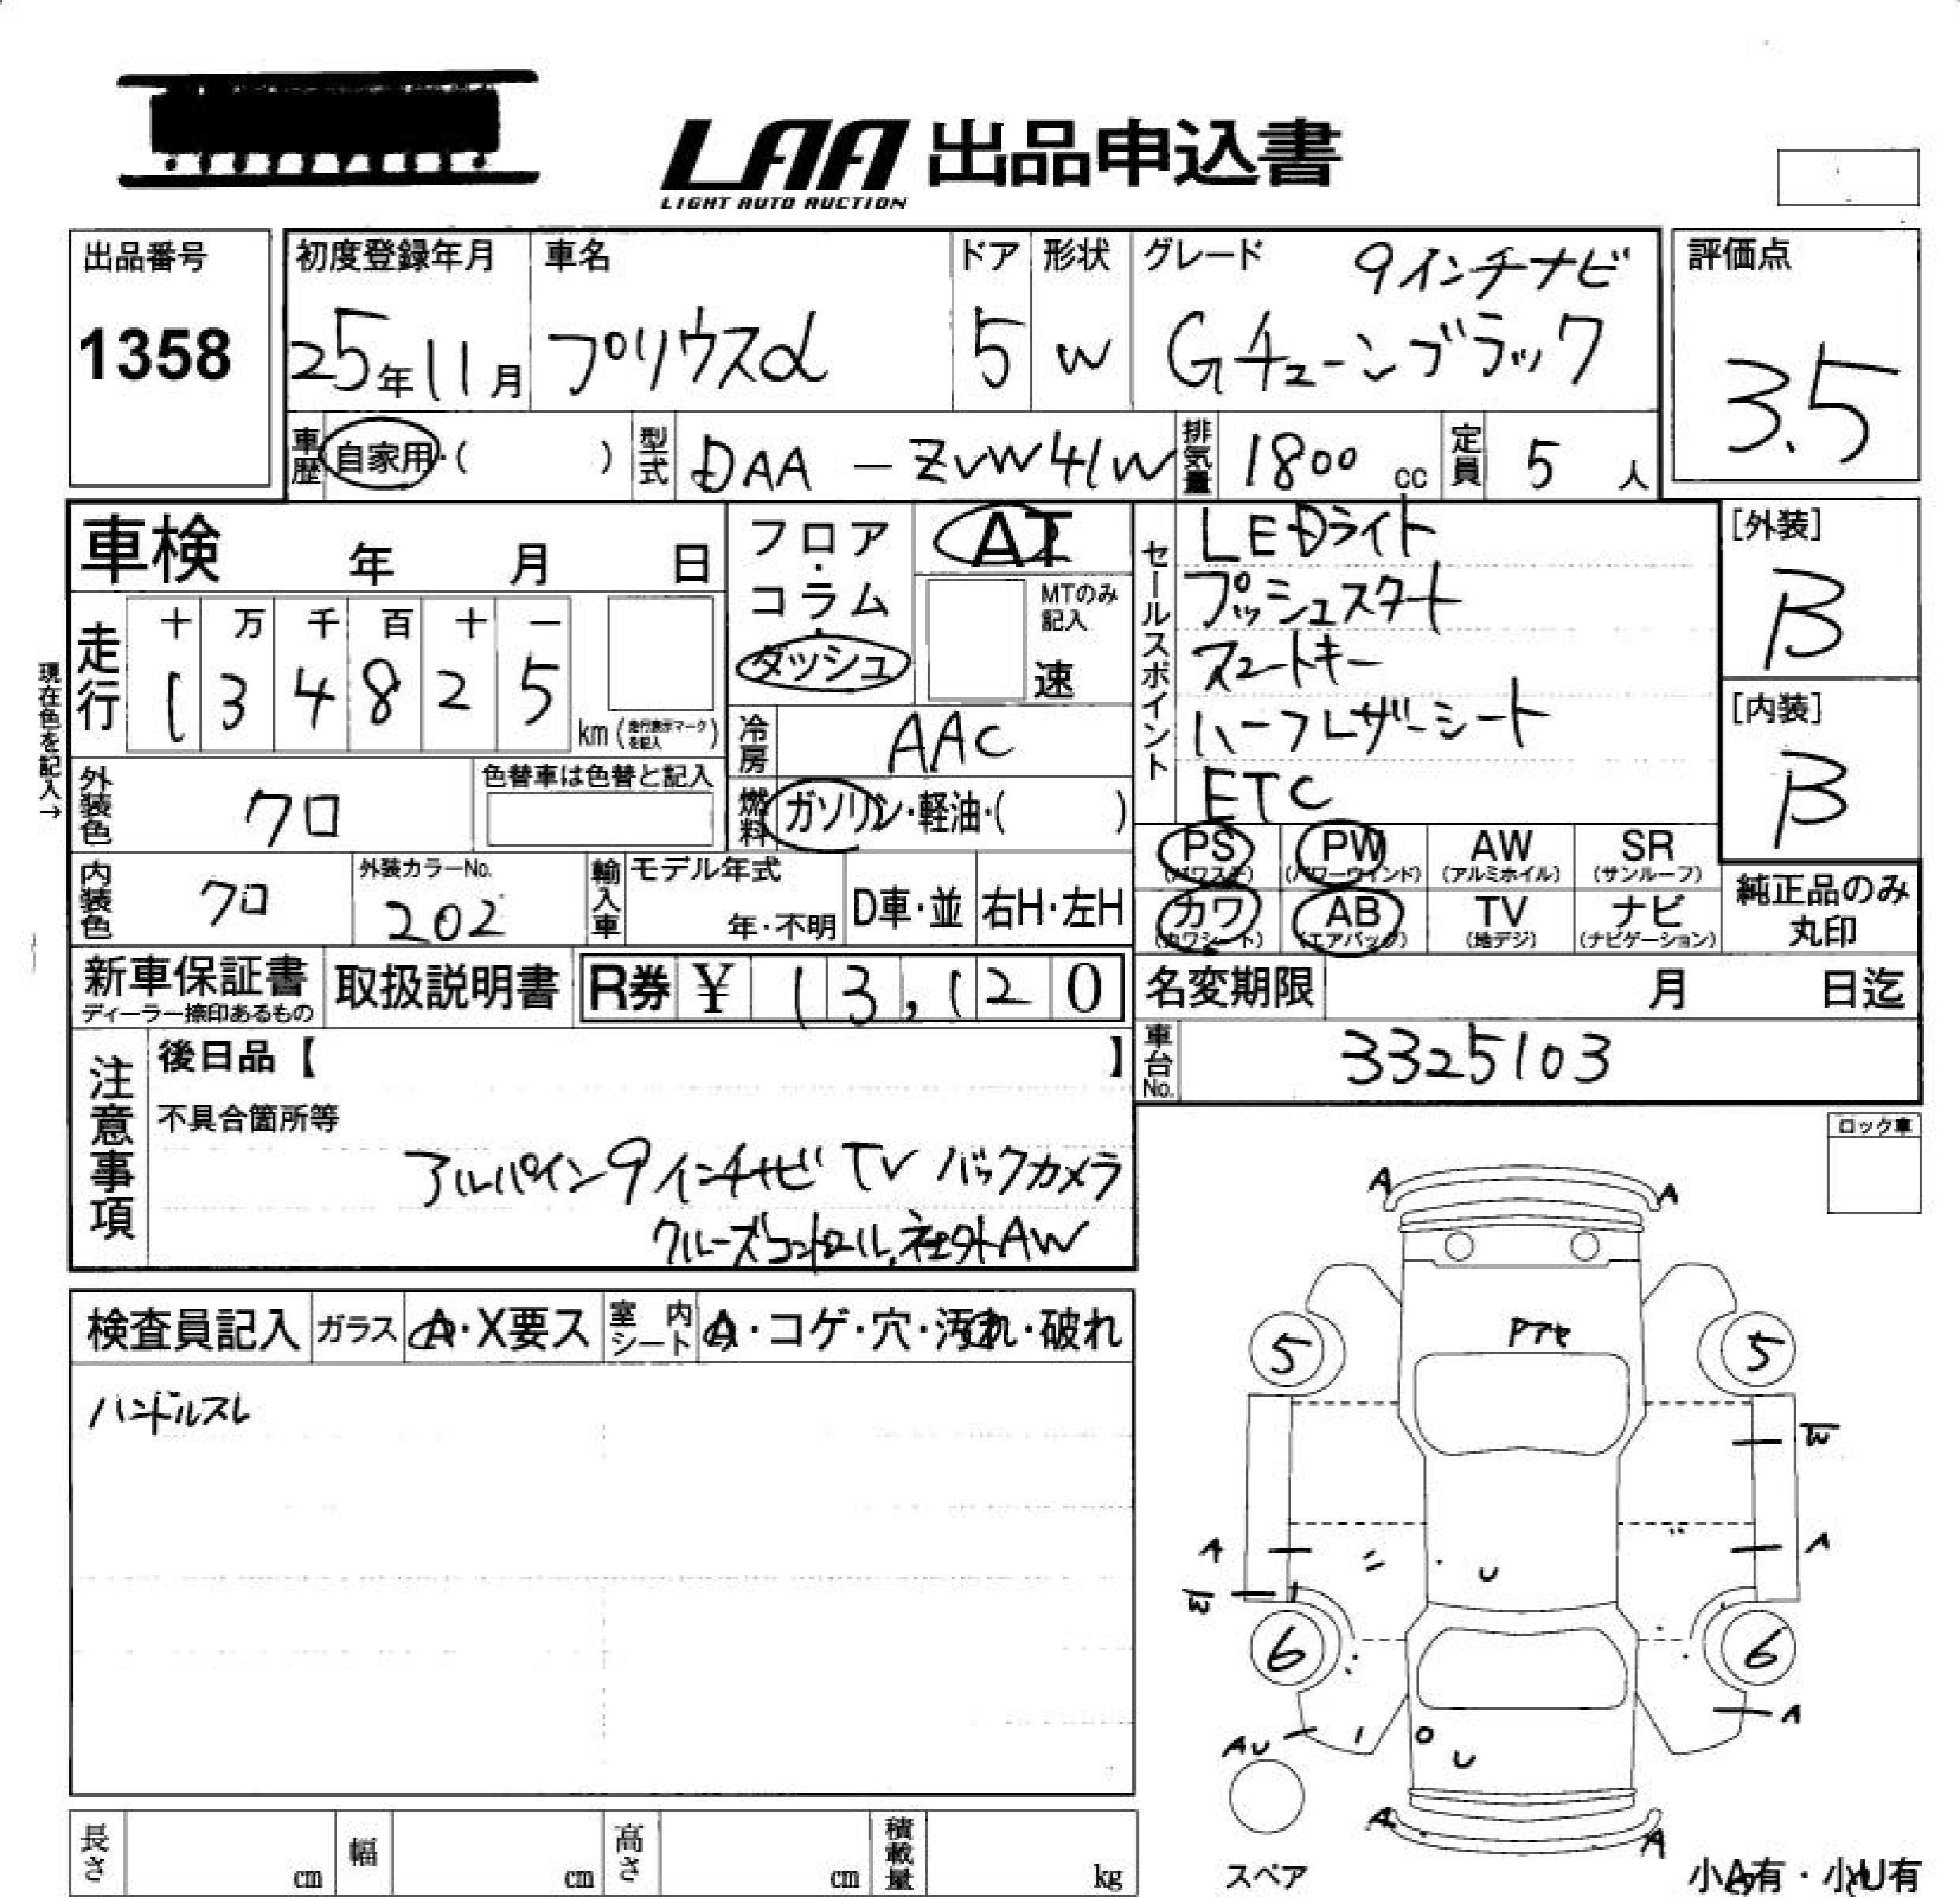 LAA 出品申込書
LIGHT AUTO AUCTION
出品番号
1358
初度登録年月
25年11月
車名
プリウスα
ドア
5
形状
W
グレード
9インチナビ
Gチューンブラック
評価点
3.5
車歴
自家用・( )
型式
DAA-ZVW41W
排気量
1800 cc
定員
5 人
車検 年 月 日
走行
十 万 千 百 十 一
1 3 4 8 2 5
km(走行表示マークを記入)
現在色を記入→
外装色
クロ
色替車は色替と記入
内装色
クロ
外装カラーNo.
202
輸入車
モデル年式
年・不明
D車・並
右H・左H
フロア・コラム・ダッシュ
AT
MTのみ記入
速
冷房
AAC
燃料
ガソリン・軽油・( )
セールスポイント
LEDライト
プッシュスタート
スマートキー
ハーフレザーシート
ETC
[外装]
B
[内装]
B
PS (パワステ)
PW (パワーウインド)
AW (アルミホイル)
SR (サンルーフ)
カワ (カワシート)
AB (エアバック)
TV (地デジ)
ナビ (ナビゲーション)
純正品のみ丸印
新車保証書
ディーラー捺印あるもの
取扱説明書
R券 ¥ 13,120
名変期限 月 日迄
車台No.
3325103
注意事項
後日品【 】
不具合箇所等
アルパイン9インチナビ TV バックカメラ
クルーズコントロール.社外AW
ロック車
検査員記入
ガラス
A・X要ス
室内シート
・コゲ・穴・汚れ・破れ
ハンドルスレ
A A
5 5
W
A A
U
W
6 6
A
AU
U
A A
スペア
小A有・小U有
長さ cm
幅 cm
高さ cm
積載量 kg